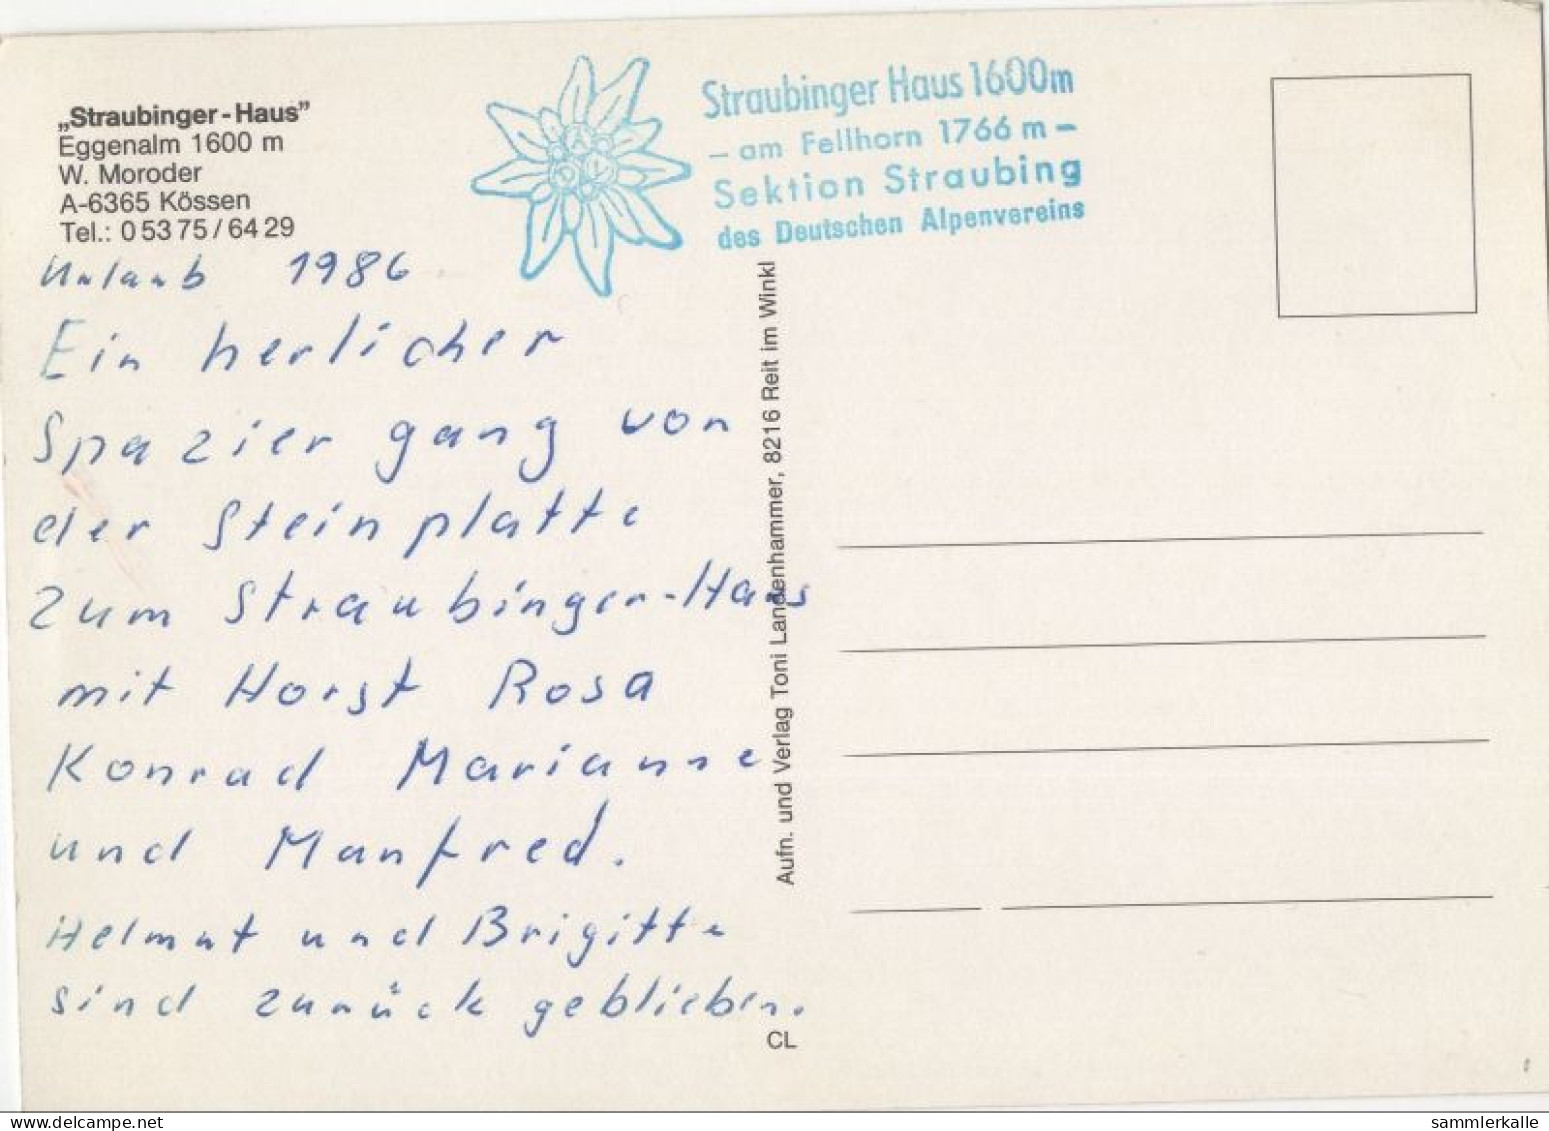 „Straubinger-Haus”
Eggenalm 1600 m
W. Moroder
A-6365 Kössen
Tel.: 0 53 75 / 64 29
Straubinger Haus 1600m
– am Fellhorn 1766 m –
Sektion Straubing
des Deutschen Alpenvereins
A
D V
Urlaub 1986
Ein herlicher
Spazier gang von
der Steinplatte
zum Straubinger-Haus
mit Horst Rosa
Konrad Marianne
und Manfred.
Helmut und Brigitte
sind zurück geblieben.
Aufn. und Verlag Toni Landenhammer, 8216 Reit im Winkl
CL
sammlerkalle